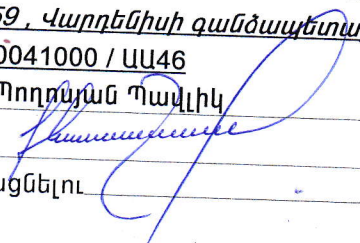 59 , Վարդենիսի գանձապետա
0041000 / ԱԱ46
Պողոսյան Պավլիկ
ացնելու